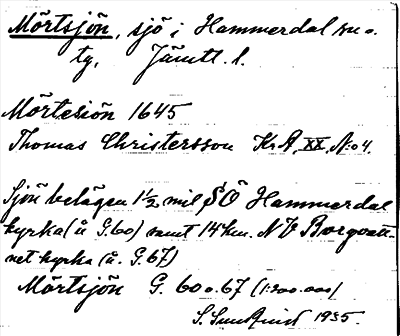 Mörtsjön, sjö i Hammerdal sn o.
tg, Jämtl. l.
Mörtesiön 1645
Thomas Christersson KrA, XX, No 4.
Sjön belägen 1 1/2 mil SÖ Hammerdal
kyrka (å G.60) samt 14 km. NV Borgvatt-
net kyrka (å. G.67)
Mörtsjön G. 60 o. 67 (1:200.000)
S. 1935.